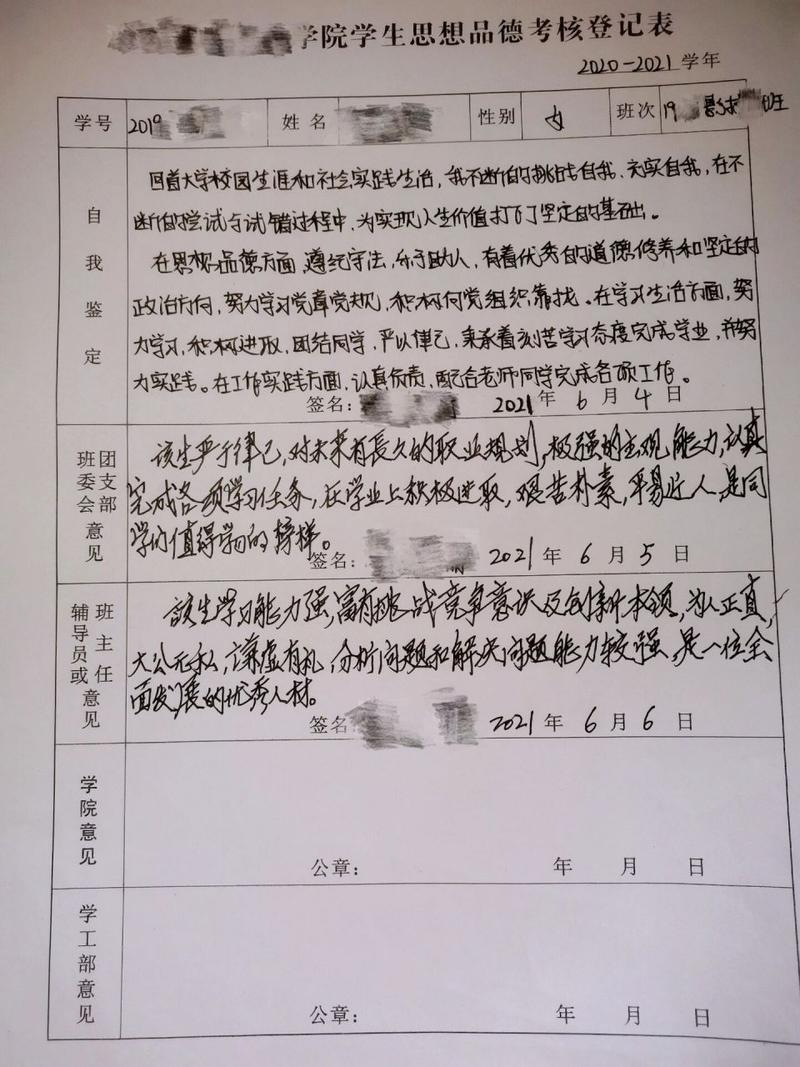 学院学生思想品德考核登记表
2020-2021学年
学号 2019 姓名 性别 女 班次 19 班
自我鉴定
回首大学校园生涯和社会实践生活,我不断的挑战自我、充实自我,在不
断的尝试与试错过程中,为实现人生价值打下了坚定的基础。
在思想品德方面,遵纪守法,乐于助人,有着优秀的道德修养和坚定的
政治方向,努力学习党章党规,积极向党组织靠拢。在学习生活方面,努
力学习,积极进取,团结同学,严以律己,秉承着刻苦学习态度完成学业,并努
力实践。在工作实践方面,认真负责,配合老师同学完成各项工作。
签名: 2021年 6月 4日
班委会团支部意见
该生严于律己,对未来有長久的职业规划,极强的主观能力,认真
完成各项学习任务,在学业上积极进取,艰苦朴素,平易近人,是同
学们值得学习的榜样。
签名: 2021年 6月 5日
辅导员或班主任意见
该生学习能力强,富有挑战竞争意识及创新本领,为人正直,
大公无私,谦虚有礼,分析问题和解决问题能力较强,是一位全
面发展的优秀人材。
签名 2021年 6月 6日
学院意见
公章: 年 月 日
学工部意见
公章: 年 月 日